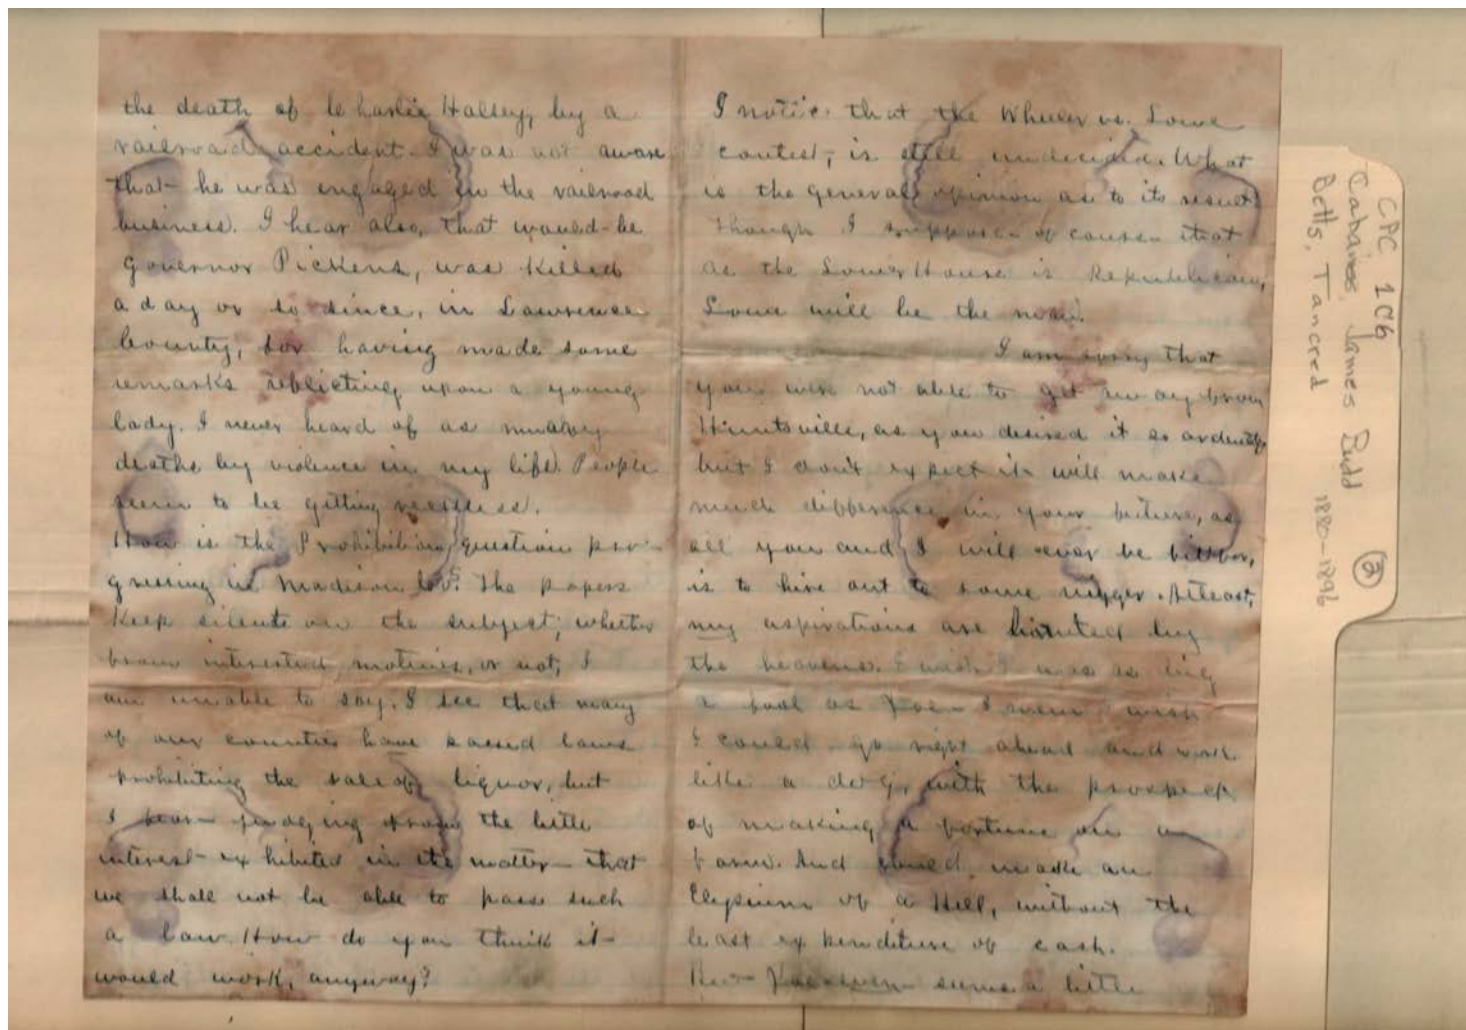 the death of Charlie Halsey, by a
railroad accident. I was not aware
that he was engaged in the railroad
business. I hear also, that would-be
Governor Pickens, was killed
a day or so since, in Lawrence
County, for having made some
remarks reflecting upon a young
lady. I never heard of as many
deaths by violence in my life. People
seem to be getting reckless.
How is the Prohibition question pro-
gressing in Madison Co? The papers
keep silents on the subject; whether
from interested motives, or not, I
am unable to say. I see that many
of our counties have passed laws
prohibiting the sale of liquor, but
I fear judging from the little
interest exhibited in the matter that
we shall not be able to pass such
a law. How do you think it
would work, anyway?
I notice that the Wheeler vs. Lowe
contest, is still undecided. What
is the general opinion as to its result
though I suppose of course that
as the Lower House is Republican,
Lowe will be the man.
I am sorry that
you were not able to get away from
Huntsville, as you desired it so ardently
but I don't expect it will make
much difference in your future, as
all you and I will ever be fit for,
is to hire out to some nigger. At least,
my aspirations are limited by
the heavens. I wish I was as big
a fool as Joe I wish
I could go right ahead and work
like a dog, with the prospect
of making a fortune on a
farm. And could make an
Elysium of a Hell, without the
least expenditure of cash.
But seems a little
CPC 1C6
Cabaniss, James Budd (2)
Betts, Tancred 1880-1896